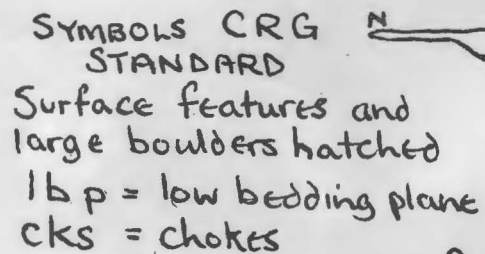 SYMBOLS CRG N
STANDARD
Surface features and
large boulders hatched
lbp = low bedding plane
cks = chokes